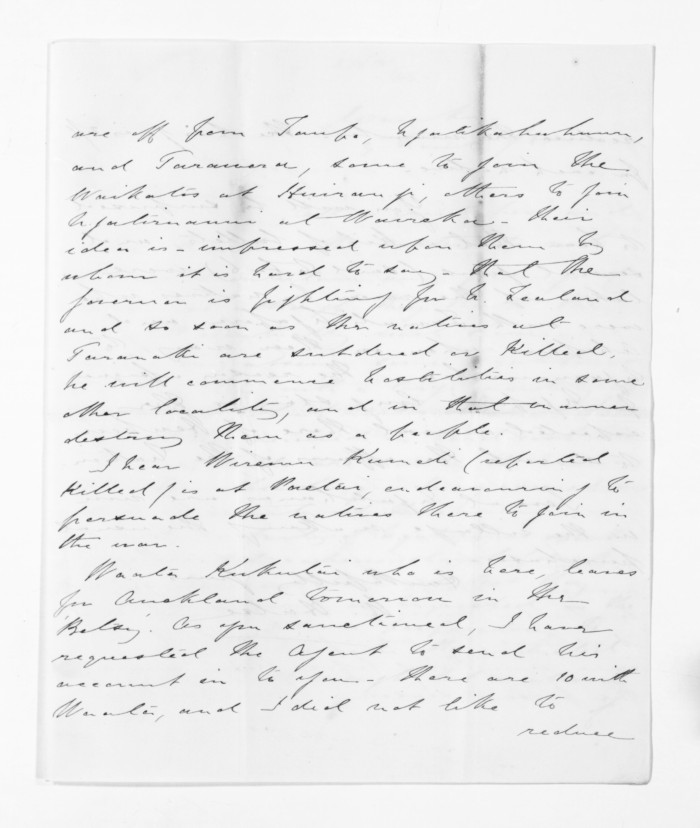 are off from Taupo, Ngatikahuhunu,
and Tarawera, some to join the
Waikatos at Huirangi, others to join
Ngatiruanui at Waireka - their
idea is - impressed upon them by
whom it is hard to say - that the
Governor is fighting for N. Zealand
and so soon as the natives at
Taranaki are subdued or killed,
he will commence hostilities in some
other locality, and in that manner
destroy them as a people.
I hear Wiremu Kumete (reported
killed) is at endeavouring to
persuade the natives there to join in
the war.
Waata Kukutai who is here, leaves
for Auckland tomorrow in the
'Betsy'. As you sanctioned, I have
requested the agent to send his
account in to you - there are 10 with
Waata, and I did not like to
reduce